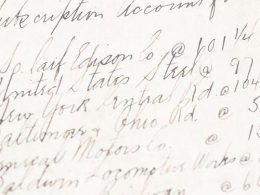 subscription account f
So Calif Edison Co @ 101 1/4
United States Steel @ 97
New York Central Rd. @ 104
Baltimore & Ohio Rd. @ 5
General Motors Co. @ 13
Baldwin Locomotive Works @ 6
@ 6